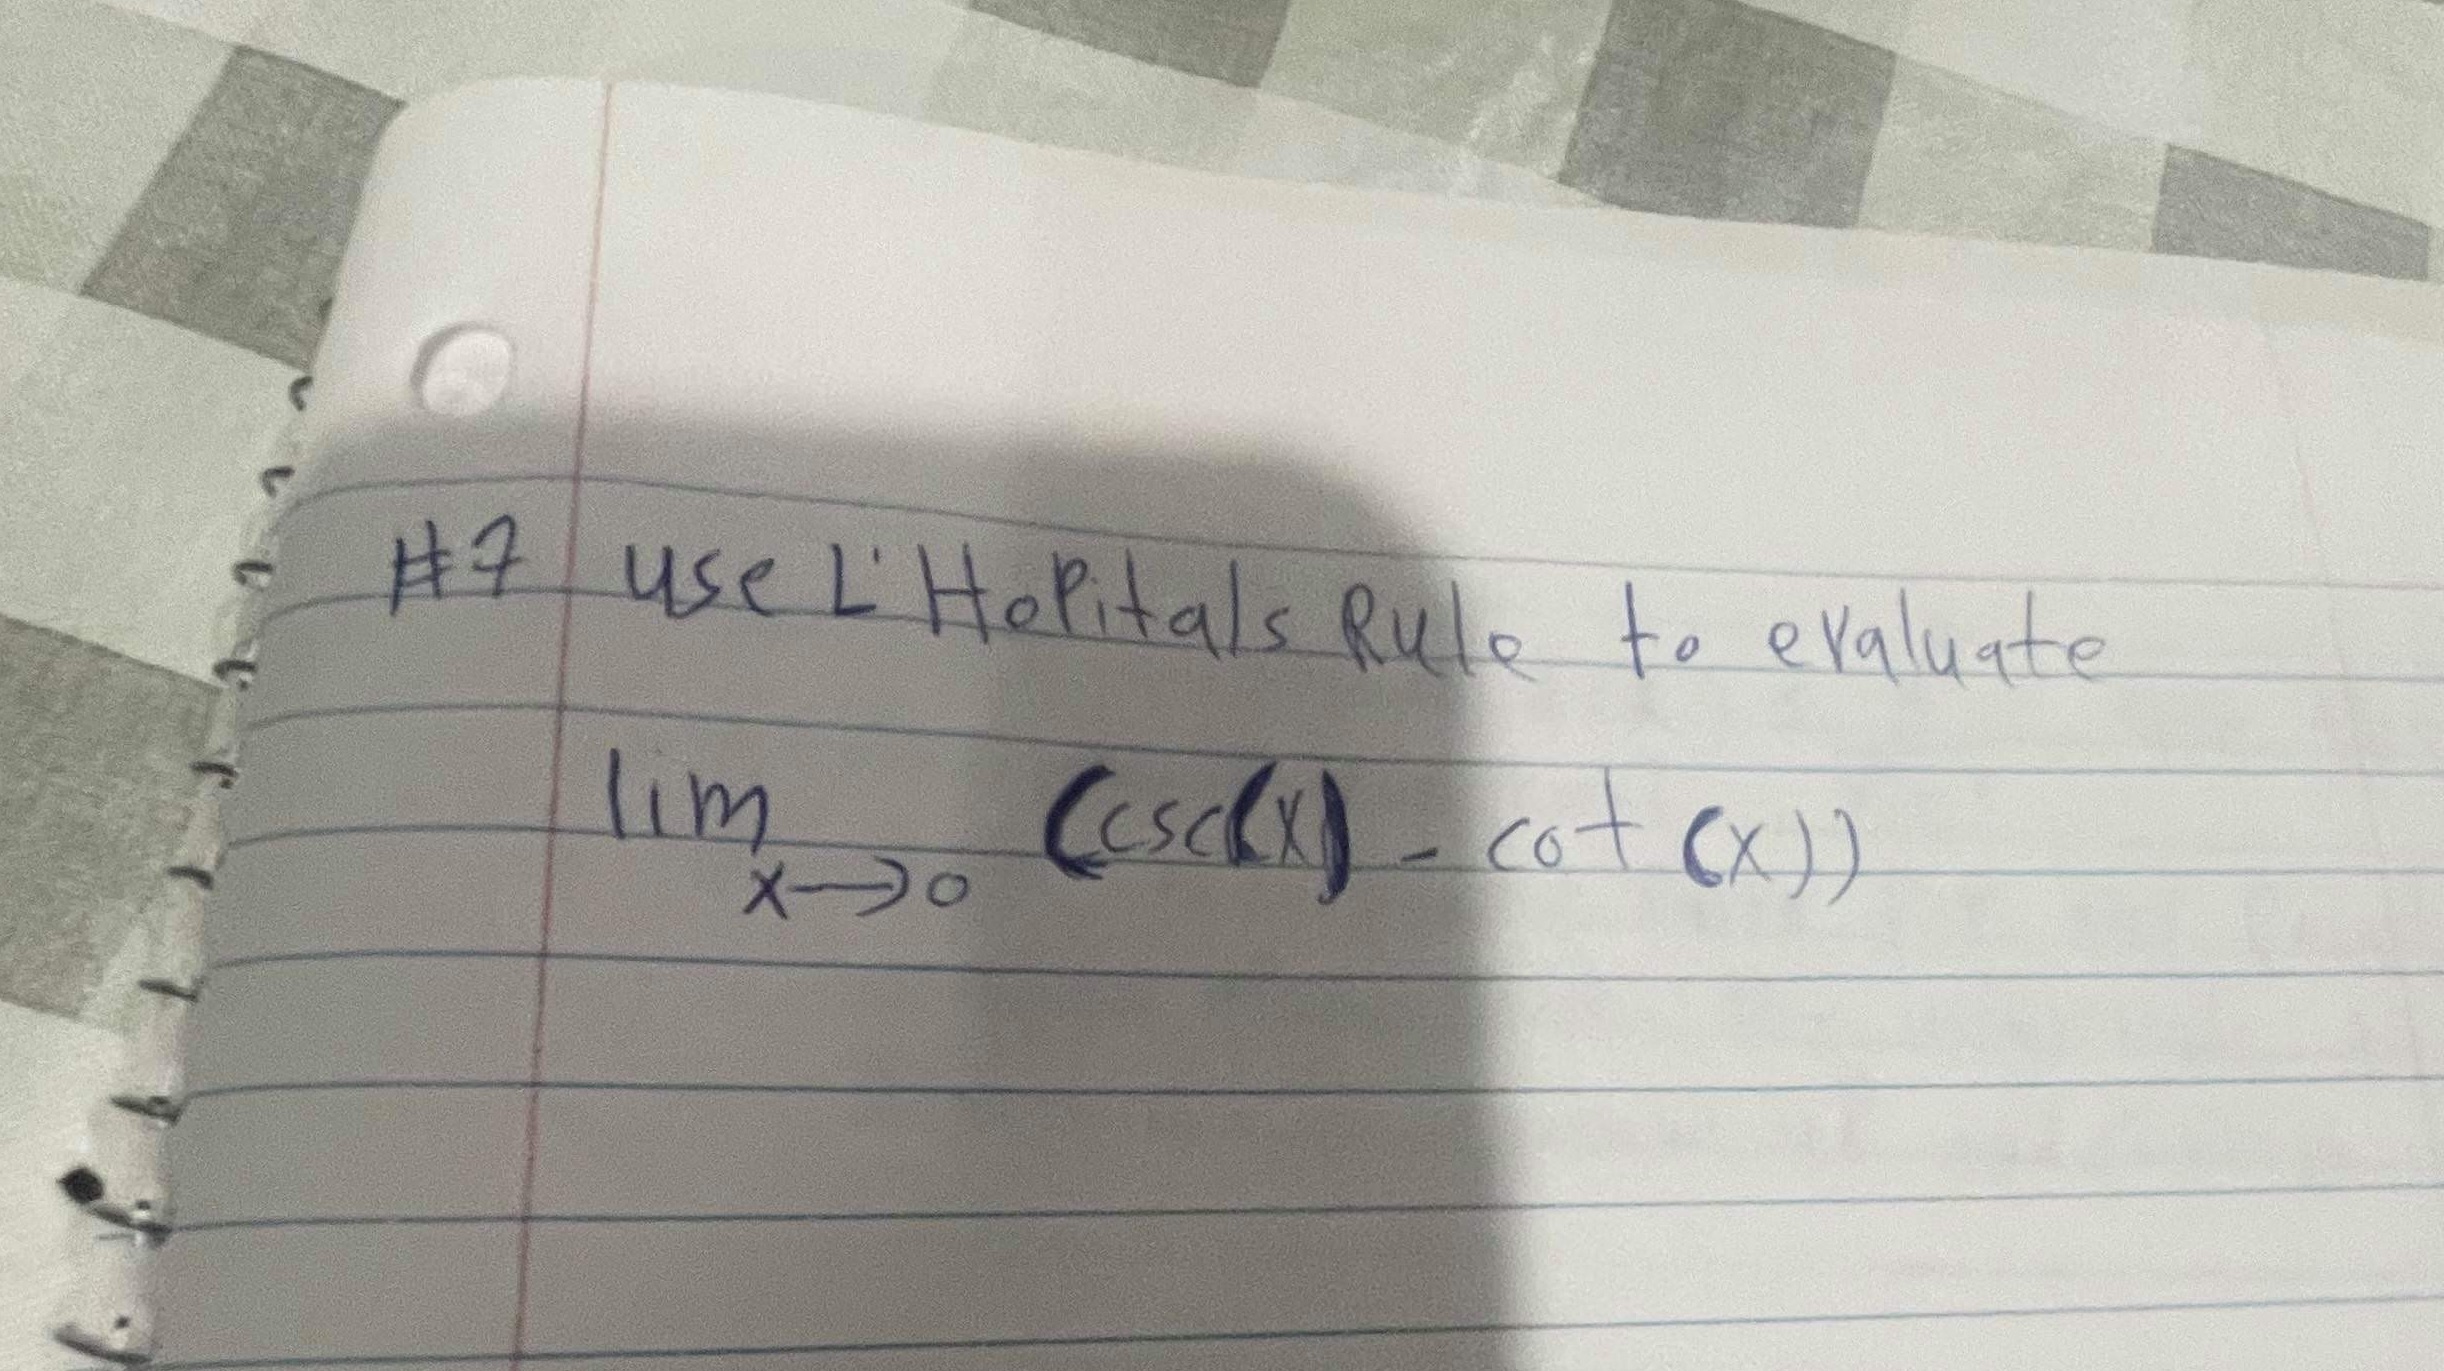 #7 use L'HoPitals Rule to evaluate
lim (csc(x) - cot (x))
x→0